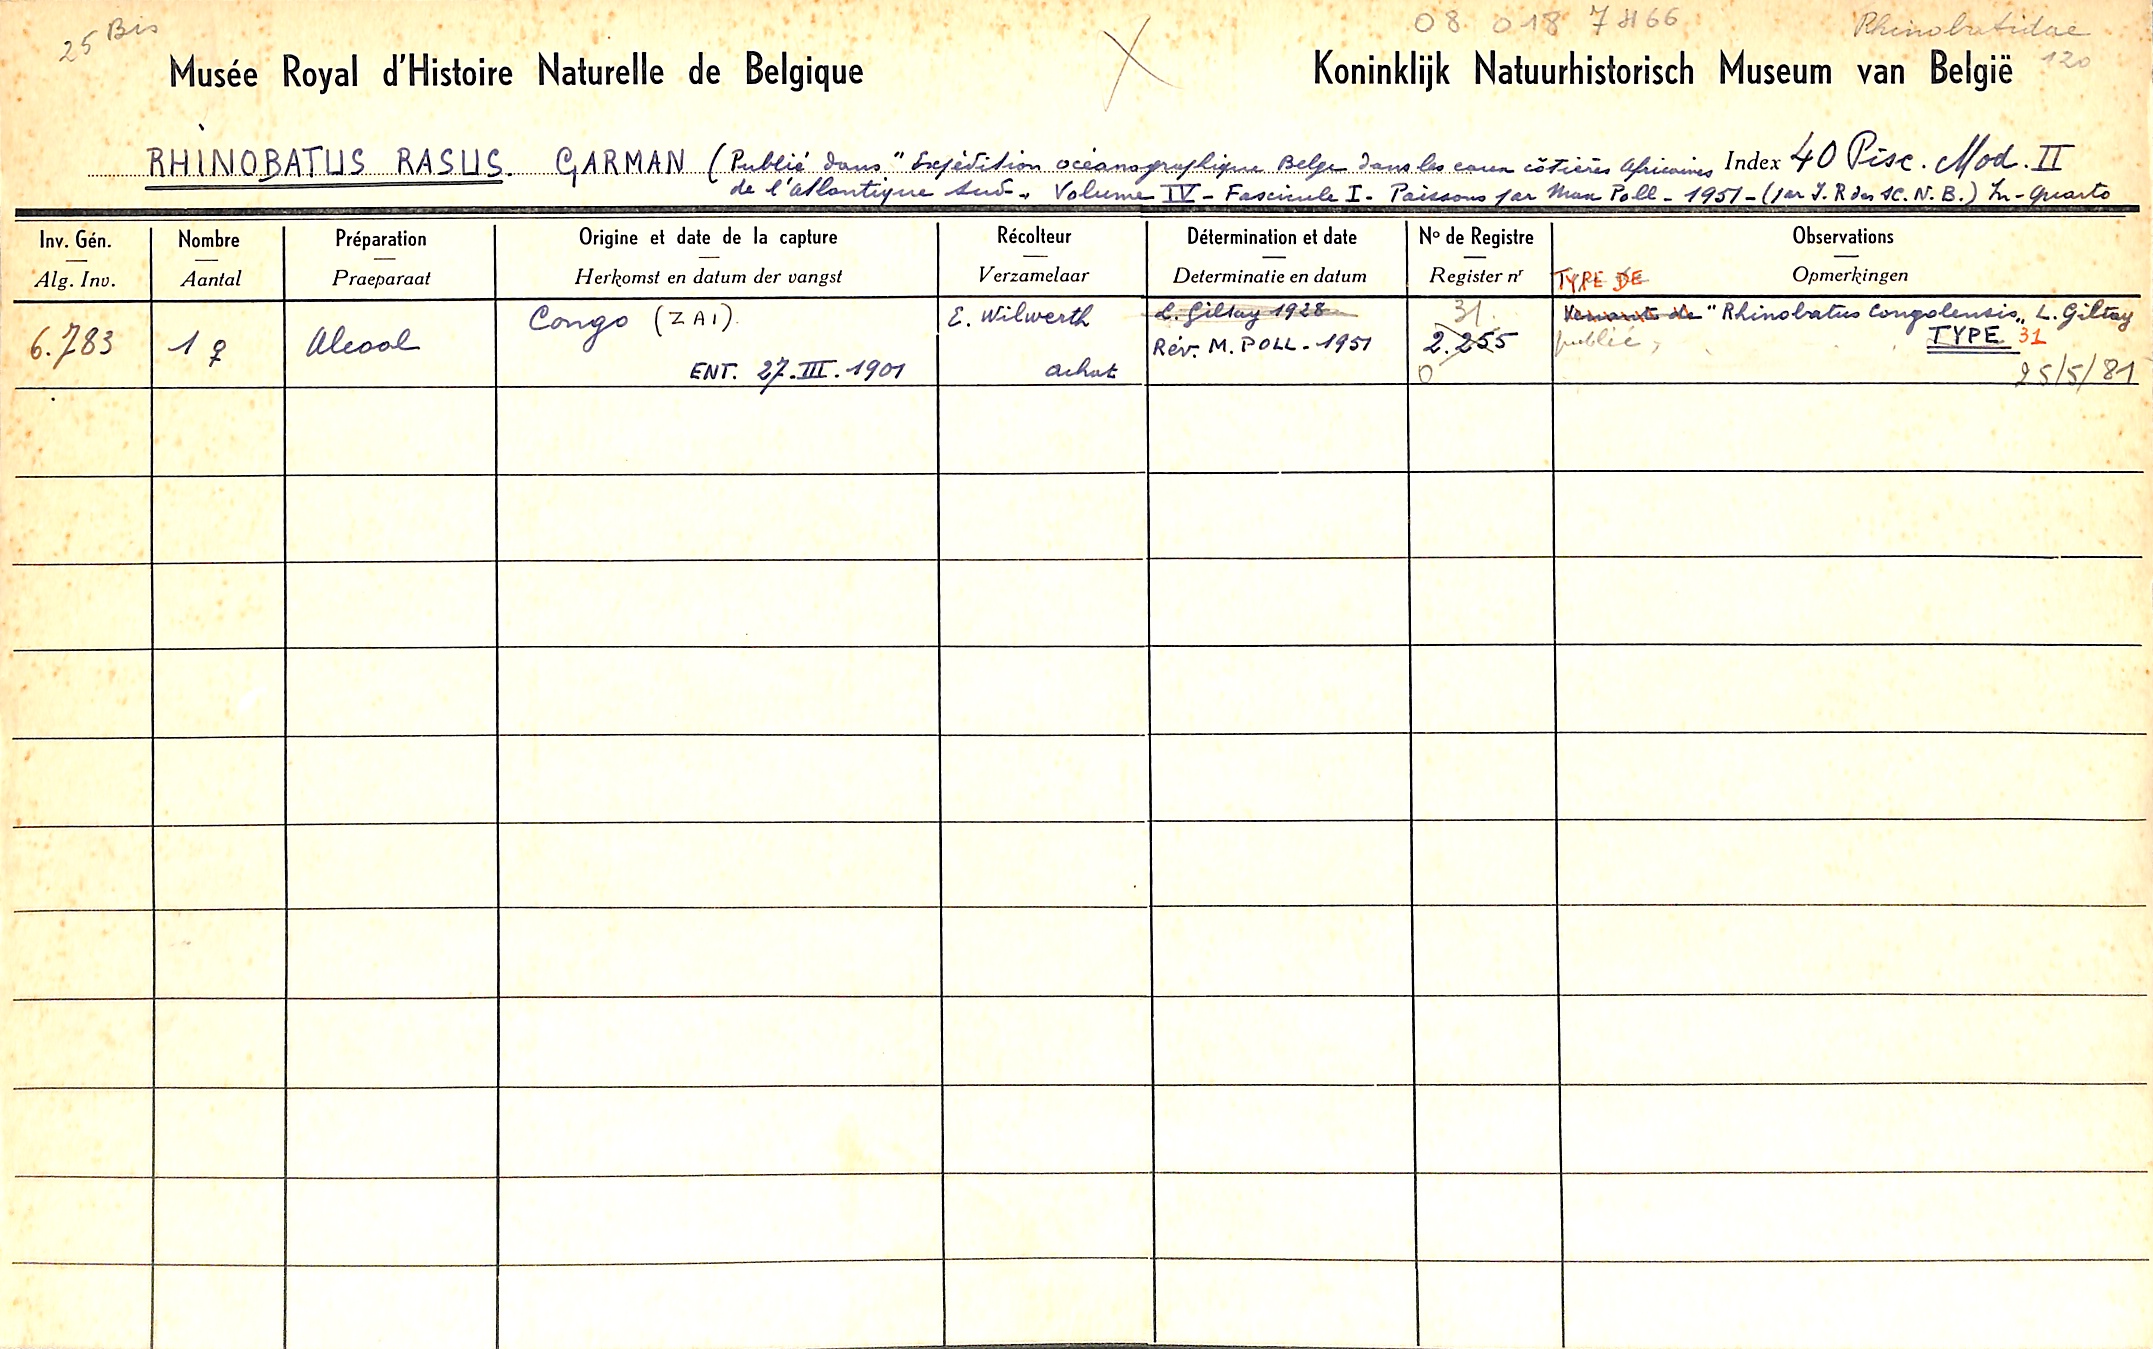 25 Bis
08 018 7466
Rhinobatidae
120
Musée Royal d'Histoire Naturelle de Belgique
Koninklijk Natuurhistorisch Museum van België
RHINOBATUS RASUS. GARMAN (Publié dans "Expédition océanographique Belge dans les eaux côtières Africaines Index 40 Pisc. Mod. II
de l'atlantique sud". Volume IV - Fascicule I - Poissons par Max Poll - 1951 - (par I. R des SC. N. B.) In-Quarto
Inv. Gén. Nombre Préparation Origine et date de la capture Récolteur Détermination et date No de Registre Observations
Alg. Inv. Aantal Praeparaat Herkomst en datum der vangst Verzamelaar Determinatie en datum Register nr Opmerkingen
TYPE DE
6.783
1 ♀
Alcool
Congo (ZAI).
ENT. 27.III.1901
E. Wilwerth
achat
L. Giltay 1928
Rév. M. POLL - 1951
31.
2.255
0
"Rhinobatus Congolensis" L. Giltay
publié,
TYPE 31
25/5/81